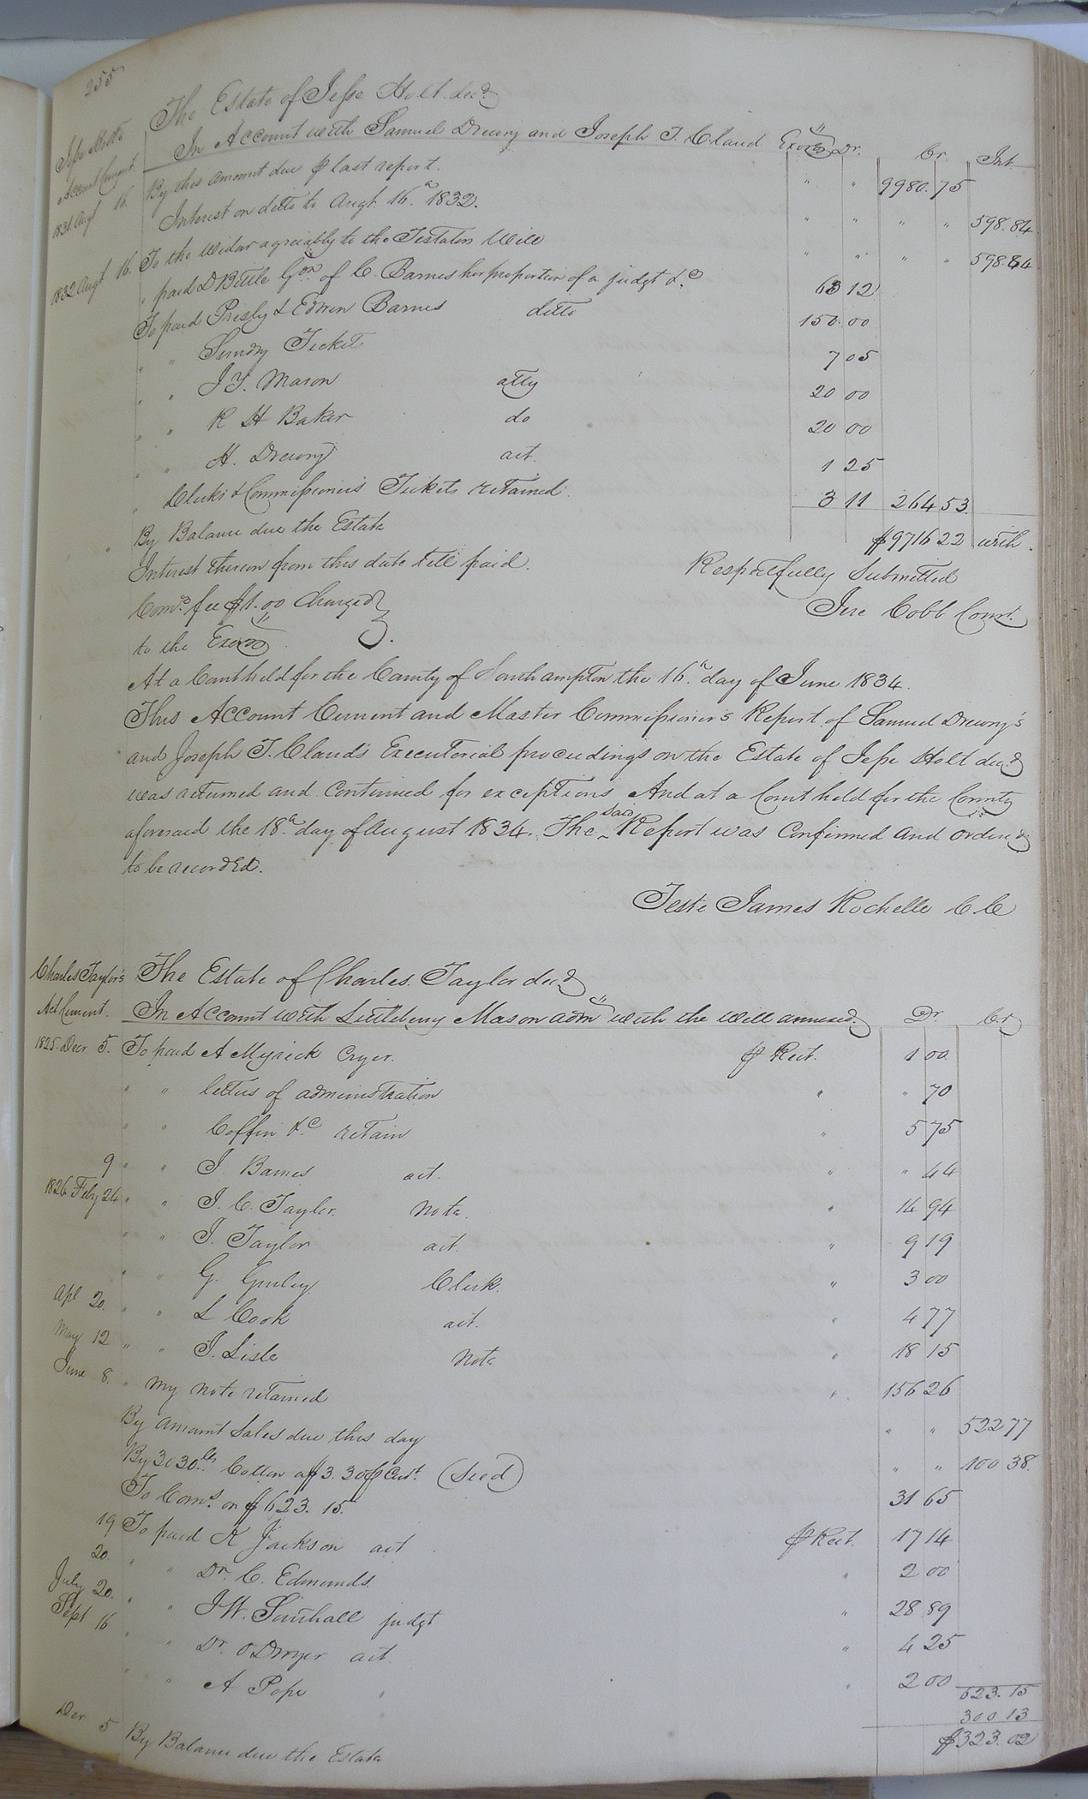 255
The Estate of Jesse Holt decd
Jesse Holts In Account with Samuel Drewry and Joseph T. Claud Exors Dr. Cr. Int
Account Currant
1831 Augt 16. By this amount due p last report. " " 9980.75
Interest on ditto to Augt. 16th 1832. " " " " 598.84
1832 Augt 16. To the Widow agreeably to the Testators Will " " " " 598.84
" paid D Bittle Gdn of C. Barnes her proportion of a judgt &c 63 12
To paid Presly & Edwin Barnes ditto 150.00
" " Sundry Tickets 7 05
" " J Y. Mason atty 20 00
" " R H Baker do 20 00
" " H. Drewry act. 1 25
" Clerks & Commissioners Tickets retained. 3 11 264 53
" By Balance due the Estate $9716 22 with
Interest thereon from this date till paid. Respectfully Submitted
Coms. fee $1.00 Charged Jere Cobb Comr.
to the Exors.
At a Court held for the County of Southampton the 16th day of June 1834.
This Account Current and Master Commissioner's Report of Samuel Drewry's
and Joseph T. Claud's Executorial proceedings on the Estate of Jesse Holt decd
was returned and Continued for exceptions And at a Court held for the County
aforesaid the 18th day of August 1834. The said Report was Confirmed and ordered
to be recorded.
Teste James Rochelle C.C
Charles Taylor's The Estate of Charles Taylor decd
Act Current. In Account with Littlebury Mason admr with the will annexed. Dr Cr
1825 Decr 5. To paid A Myrick Cryer. p Rect. 1 00
" " letters of administration " " 70
" " Coffin &c retain " 5 75
9 " " J. Barnes act. " " 44
1826 Feby 24 " " J. C. Taylor. Note. " 14 94
" " J. Taylor act. " 9 19
" " G. Gurley Clerk. " 3 00
Apl 20. " " L Cook act. " 4 77
May 12 " " J. Lisle Note " 18 15
June 8. " my note retained " 156 26
By amount Sales due this day " " 522 77
By 3030 lbs Cotton a $3.30 p Cwt. (Seed) " " 100 38.
To Coms. on $623.15. 31 65
19 To paid K Jackson act p Rect. 17 14
20. " Dr. C. Edmunds. " 2 00
July 20. " " J W. Southall judgt " 28 89
Sept 16 " " Dr. O Dwyer act. " 4 25
" " A Pope " " 2 00 623.15
300 13
Decr 5 By Balance due the Estate $323.02